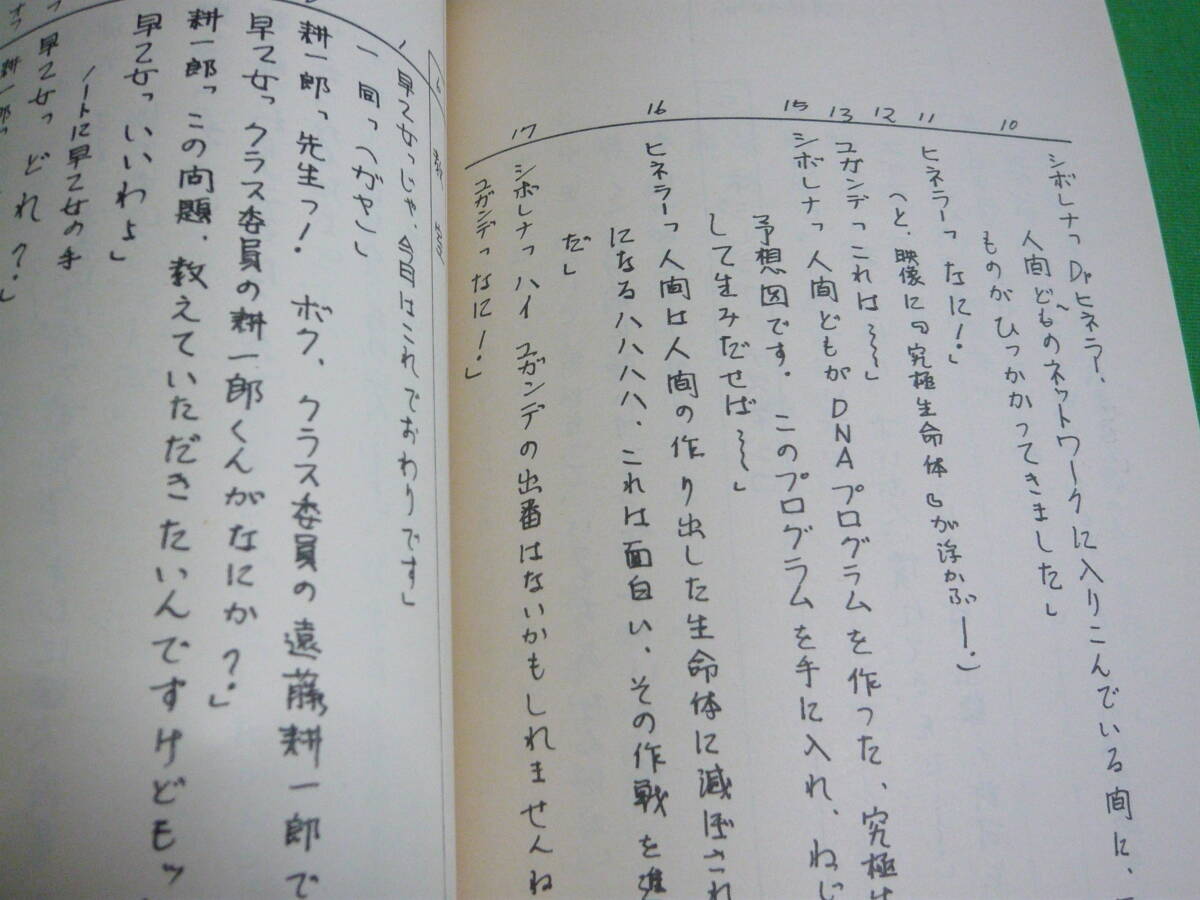 10
シボレナっDrヒネラー、
人間どものネットワークに入りこんでいる間に、
ものがひっかかってきました」
11
ヒネラーっなに！」
12
（と、映像に「究極生命体」が浮かぶ―）
13
ユガンデっこれは～～」
15
シボレナっ人間どもがDNAプログラムを作った、究極
予想図です。このプログラムを手に入れ、ねじ
して生みだせば～～」
16
ヒネラーっ人間は人間の作り出した生命体に滅ぼされ
になるハハハハ、これは面白い、その作戦を進
だ」
17
シボレナっハイ ユガンデの出番はないかもしれませんね
ユガンデっなに！」
教室
1
早乙女っじゃ、今日はこれでおわりです」
一同っ（ガヤ）」
耕一郎っ先生っ！ ボク、クラス委員の遠藤耕一郎で
早乙女っクラス委員の耕一郎くんがなにか？」
耕一郎っこの問題、教えていただきたいんですけどもッ
早乙女っいいわよ」
ノートに早乙女の手
早乙女っどれ？」
耕一郎っ